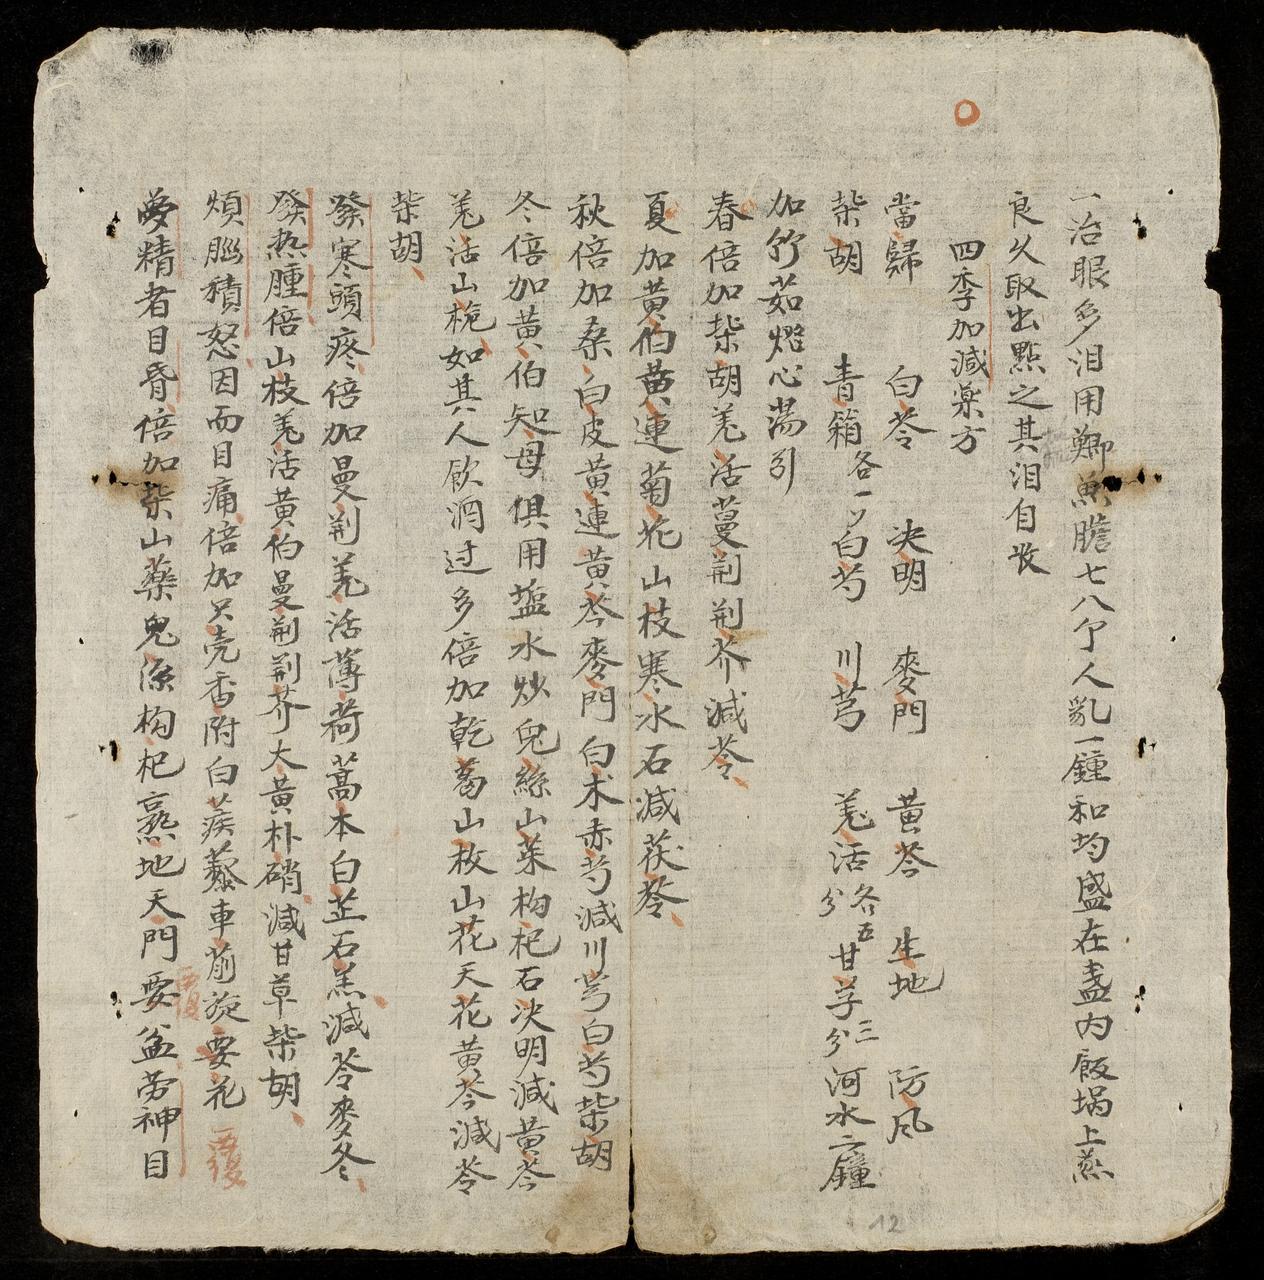 一治眼多泪用鄉魚膽七八个人乱一鍾和均盛在盞内飯堝上蒸
良久取出點之其泪自收
四季加減藥方
當歸 白苓 决明 麥門 黄芩 生地 防风
柴胡 青箱各一卜白芍 川芎 羗活各五分甘草三分河水二鐘
加竹茹燈心湯引
春倍加柴胡羗活蔓荆荆芥減苓
夏加黄伯黄連菊花山枝寒水石減茯苓
秋倍加桑白皮黄連黄芩麥門白术赤芍減川芎白芍柴胡
冬倍加黄伯知母俱用塩水炒兎絲山茱枸杞石决明減黄芩
羗活山栀如其人飲酒过多倍加乾葛山枚山花天花黄芩減苓
柴胡
發寒頭疼倍加曼荆羗活薄荷蒿本白芷石羔減苓麥冬
發热腫倍山枝羗活黄伯曼荆荆芥大黄朴硝減甘草柴胡
煩腦積怒因而目痛倍加只壳香附白蒺藜車前旋要花 覆
夢精者目昏倍加柴山藥兎絲枸杞熟地天門要盆勞神目
覆
12